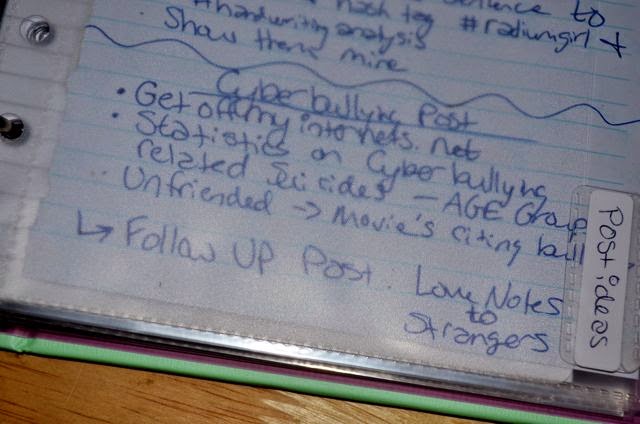 hash tag #radiumgirl +
#handwriting analysis
Show them mine
Cyberbullying Post
• Get off my internets.net
• Statistics on Cyberbullying
related Suicides - AGE Group
Unfriended -> Movie's citing bull
↳ Follow UP Post. Love Notes
to
Strangers
Post ideas